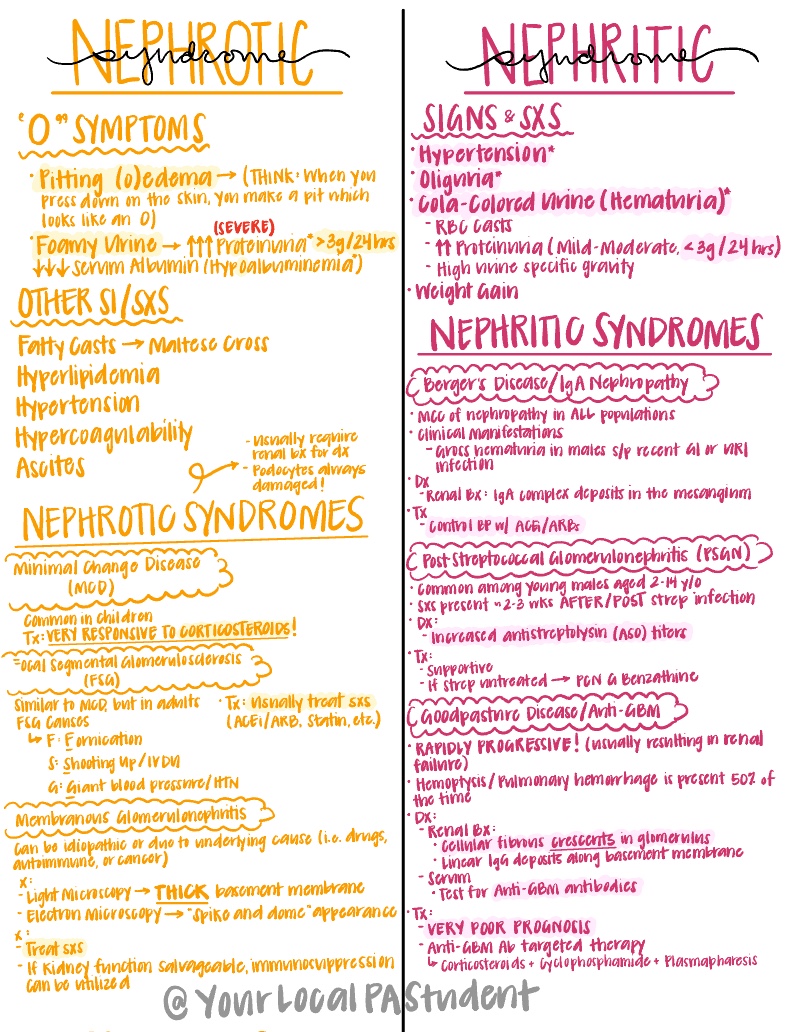 NEPHROTIC
syndrome
"O" SYMPTOMS
• Pitting (o)edema → (THINK: When you
press down on the skin, you make a pit which
looks like an O)
(SEVERE)
• Foamy Urine → ↑↑↑ Proteinuria* >3g/24hrs
↓↓↓ Serum Albumin (Hypoalbuminemia*)
OTHER SI/SXS
Fatty Casts → Maltese Cross
Hyperlipidemia
Hypertension
Hypercoagulability
Ascites
- Usually require
renal bx for dx
- Podocytes always
damaged!
NEPHROTIC SYNDROMES
Minimal Change Disease
(MCD)
Common in children
Tx: VERY RESPONSIVE TO CORTICOSTEROIDS!
Focal Segmental Glomerulosclerosis
(FSG)
Similar to MCD, but in adults
FSG Causes
↳ F: Fornication
S: Shooting Up/IVDU
G: Giant blood pressure/HTN
• Tx: Usually treat sxs
(ACEi/ARB, Statin, etc.)
Membranous Glomerulonephritis
Can be idiopathic or due to underlying cause (i.e. drugs,
autoimmune, or cancer)
x:
- Light Microscopy → THICK basement membrane
- Electron Microscopy → "Spike and dome" appearance
x:
- Treat sxs
- If kidney function salvageable, immunosuppression
can be utilized
NEPHRITIC
syndrome
SIGNS & SXS
• Hypertension*
• Oliguria*
• Cola-Colored Urine (Hematuria)*
- RBC Casts
- ↑↑ Proteinuria (Mild-Moderate, <3g/24 hrs)
- High urine specific gravity
• Weight Gain
NEPHRITIC SYNDROMES
Berger's Disease/IgA Nephropathy
• MCC of nephropathy in ALL populations
• Clinical Manifestations
- Gross hematuria in males s/p recent GI or URI
infection
• Dx
- Renal Bx: IgA complex deposits in the mesangium
• Tx
- Control BP w/ ACEi/ARBs
Post-Streptococcal Glomerulonephritis (PSGN)
• Common among young males aged 2-14 y/o
• Sxs present ~2-3 wks AFTER/POST strep infection
• Dx:
- Increased antistreptolysin (ASO) titers
• Tx:
- Supportive
- If strep untreated → PCN G Benzathine
Goodpasture Disease/Anti-GBM
• RAPIDLY PROGRESSIVE! (usually resulting in renal
failure)
• Hemoptysis/Pulmonary hemorrhage is present 50% of
the time
• Dx:
- Renal Bx:
• Cellular fibrous crescents in glomerulus
• Linear IgG deposits along basement membrane
- Serum
• Test for Anti-GBM antibodies
• Tx:
- VERY POOR PROGNOSIS
- Anti-GBM Ab targeted therapy
↳ Corticosteroids + Cyclophosphamide + Plasmapharesis
@YourLocalPAStudent